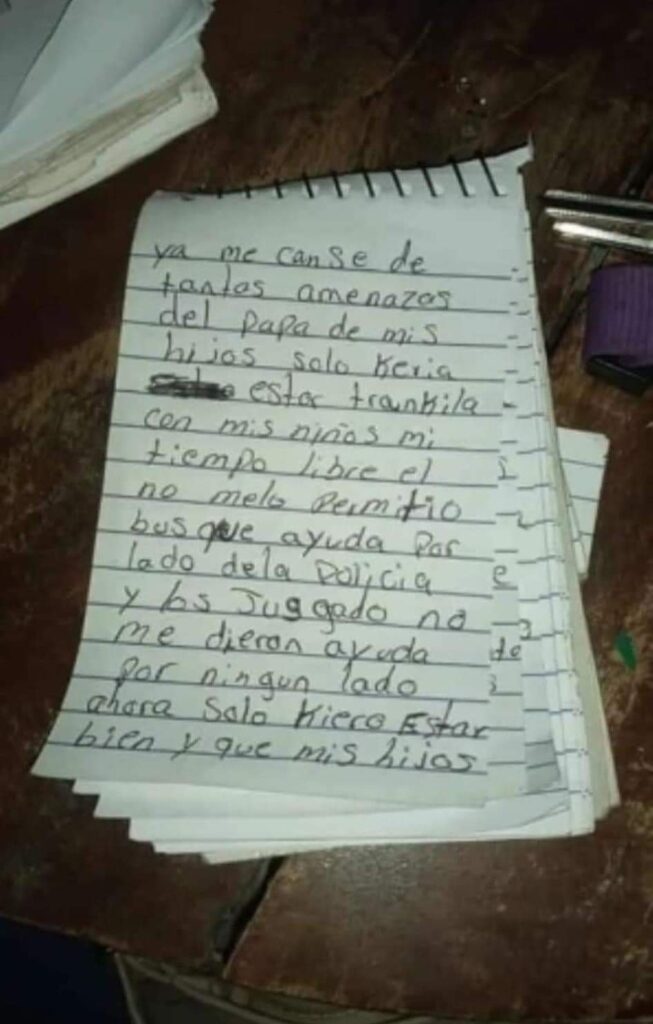 ya me canse de
tantas amenazas
del papa de mis
hijos solo Keria
estar trankila
con mis niños mi
tiempo libre el
no melo permitio
busque ayuda por
lado dela Policia
y los Juggado no
me dieron ayuda
por ningun lado
ahora Solo Kiero Estar
bien y que mis hijos